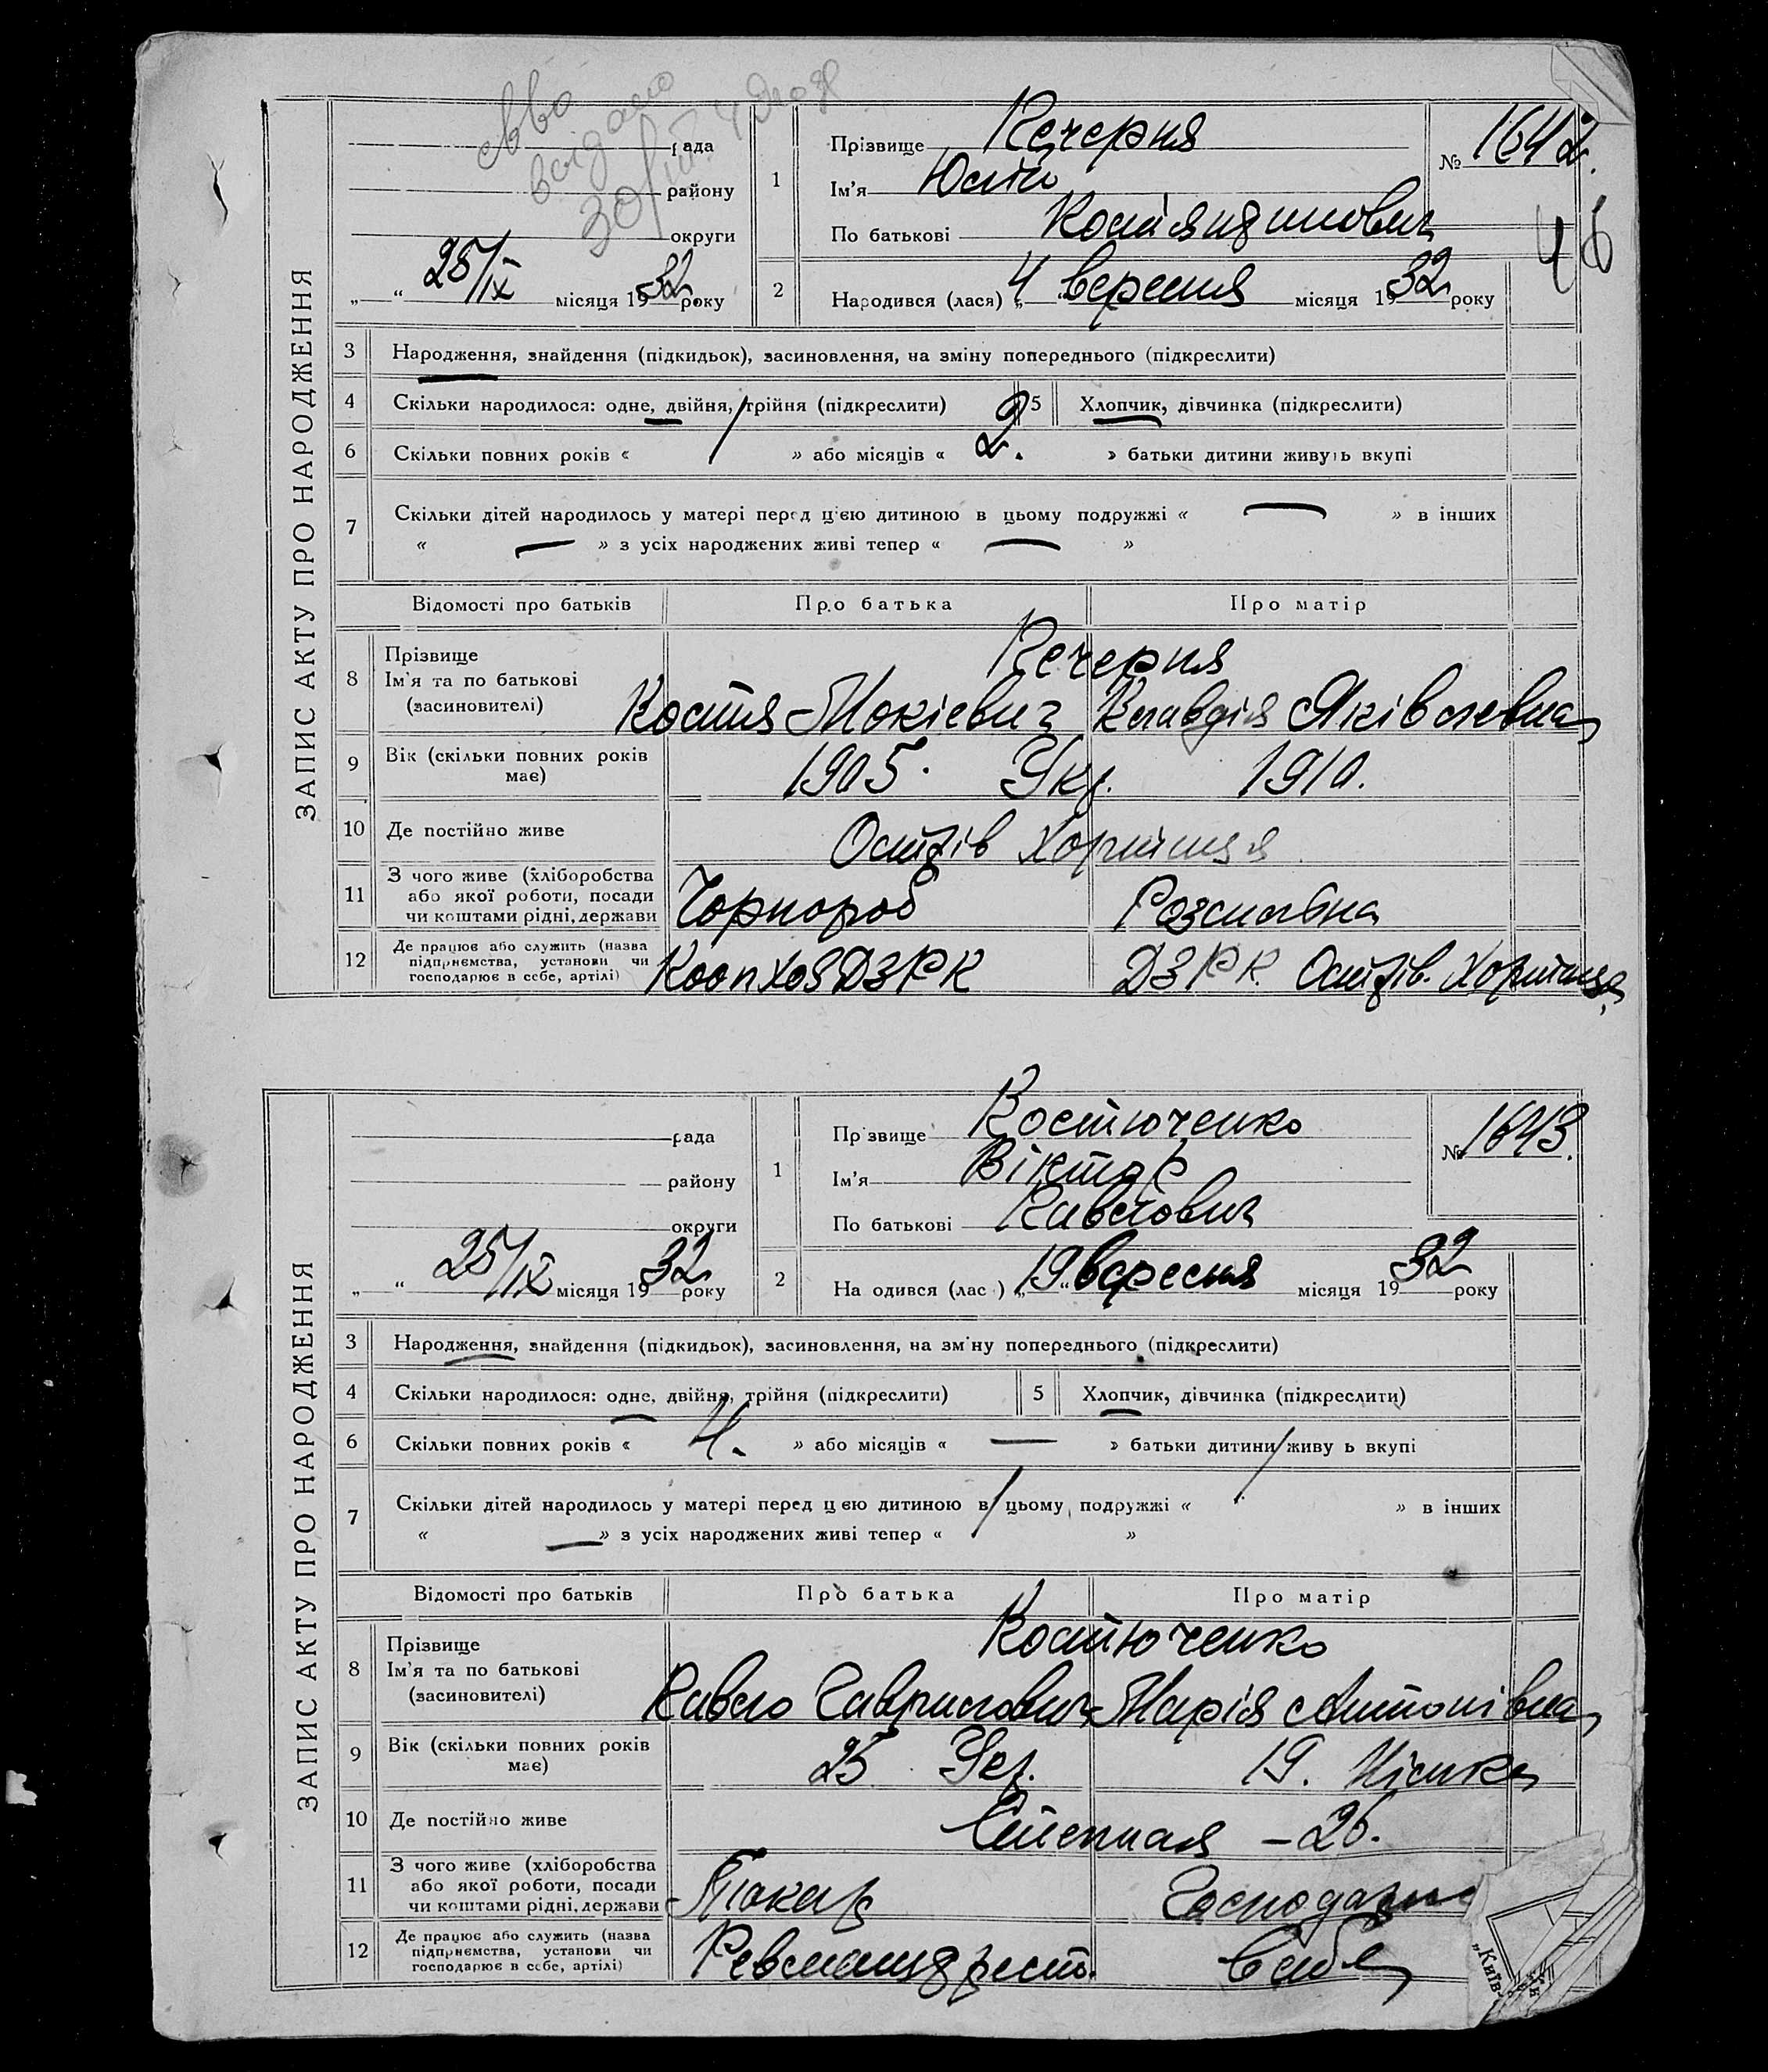 видано
30/
ЗАПИС АКТУ ПРО НАРОДЖЕННЯ
рада
району
округи
„ “ 25/IX місяця 1932 року
1
Прізвище Печерня
Ім'я
По батькові Костянтинович
№ 1642.
46
2
Народився (лася) „4 вересня місяця 1932 року
3 Народження, знайдення (підкидьок), засиновлення, на зміну попереднього (підкреслити)
4 Скільки народилося: одне, двійня, трійня (підкреслити) 5 Хлопчик, дівчинка (підкреслити)
6 Скільки повних років « » або місяців « 2. » батьки дитини живуть вкупі
7 Скільки дітей народилось у матері перед цією дитиною в цьому подружжі « — » в інших
« — » з усіх народжених живі тепер « — »
Відомості про батьків Про батька Про матір
8 Прізвище
Ім'я та по батькові
(засиновителі)
Печерня
Костя Мокієвич Клавдія Яківлевна
9 Вік (скільки повних років
має)
1905. Укр. 1910.
10 Де постійно живе Острів Хортиця
11 З чого живе (хліборобства
або якої роботи, посади
чи коштами рідні, держави
Чорнороб
12 Де працює або служить (назва
підприємства, установи чи
господарює в себе, артілі)
КоопхозДЗРК ДЗРК. Острів. Хортиця
ЗАПИС АКТУ ПРО НАРОДЖЕННЯ
рада
району
округи
„ “ 25/IX місяця 1932 року
1
Пр звище Костюченко
Ім'я Віктор
По батькові Павлович
№ 1643.
2
На одився (лас ) „19“ вересня місяця 1932 року
3 Народження, знайдення (підкидьок), засиновлення, на зм ну попереднього (підкреслити)
4 Скільки народилося: одне, двійня, трійня (підкреслити) 5 Хлопчик, дівчинка (підкреслити)
6 Скільки повних років « 4. » або місяців « — » батьки дитини живу ь вкупі
7 Скільки дітей народилось у матері перед ц єю дитиною в цьому подружжі « » в інших
« — » з усіх народжених живі тепер « »
Відомості про батьків Про батька Про матір
8 Прізвище
Ім'я та по батькові
(засиновителі)
Костюченко
Павло Гаврилович Марія Антонівна
9 Вік (скільки повних років
має)
25 Укр. 19.
10 Де постійно живе Степная – 26.
11 З чого живе (хліборобства
або якої роботи, посади
чи коштами рідні, держави
Токар Господарює
12 Де працює або служить (назва
підприємства, установи чи
господарює в себе, артілі)
в себе
„Київ-